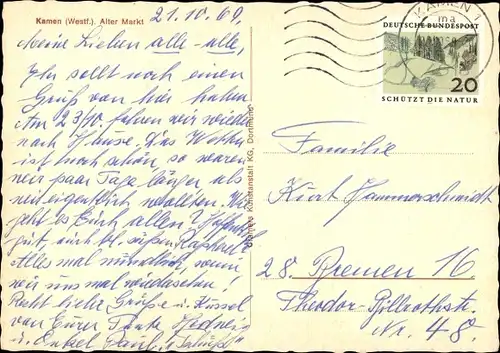 Kamen (Westf.). Alter Markt
21.10.69.
Meine Lieben alle - alle,
Ihr sollt noch einen
Gruß von hier haben.
Am 23/10. fahren wir wieder
nach Hause. Das Wetter
ist noch schön, so waren
wir paar Tage länger als
wir eigentlich wollten. Wie
geht es Euch allen? Hoffentl.
gut, auch
Alles mal mündlich, wenn
wir uns mal wiedersehen!
Recht liebe Grüße u. Küssel
von Eurer Tante Hedwig
u. Onkel Paul.
Cramers Kunstanstalt KG, Dortmund
KAMEN
DEUTSCHE BUNDESPOST
20
SCHÜTZT DIE NATUR
Familie
Kurt Hammerschmidt
28. Bremen 16
Theodor-Billrothstr.
Nr. 48.